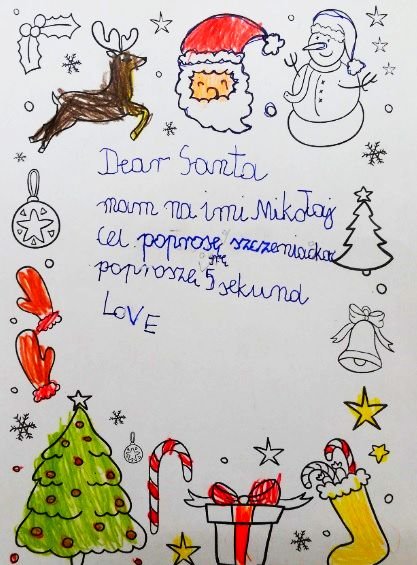 Dear Santa
mam na imi Mikołaj
poproszę szczeniaczka
poproszę grę 5 sekund
LOVE